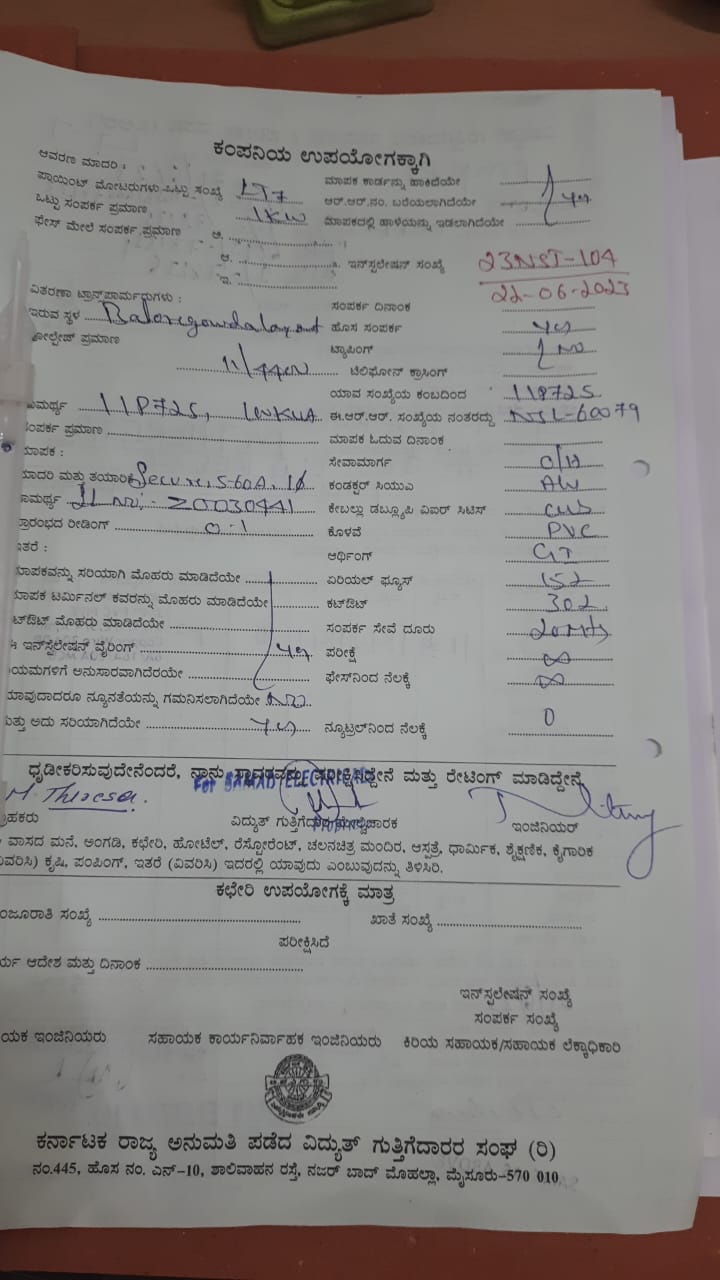 ಕಂಪನಿಯ ಉಪಯೋಗಕ್ಕಾಗಿ
ಆವರಣ ಮಾದರಿ : ಮಾಪಕ ಕಾರ್ಡನ್ನು ಹಾಕಿದೆಯೇ
ಪ್ಲಾಯಿಂಟ್ ಮೋಟರುಗಳು ಒಟ್ಟು ಸಂಖ್ಯೆ LT7 ಆರ್.ಆರ್.ನಂ. ಬರೆಯಲಾಗಿದೆಯೇ yes
ಒಟ್ಟು ಸಂಪರ್ಕ ಪ್ರಮಾಣ 1KW ಮಾಪಕದಲ್ಲಿ ಹಾಳೆಯನ್ನು ಇಡಲಾಗಿದೆಯೇ
ಫೇಸ್ ಮೇಲೆ ಸಂಪರ್ಕ ಪ್ರಮಾಣ ಆ.
ಆ. ಇನ್‌ಸ್ಟಲೇಷನ್ ಸಂಖ್ಯೆ 23NST-104
ಇ. 22-06-2023
ವಿತರಣಾ ಟ್ರಾನ್ಸ್‌ಫಾರ್ಮರುಗಳು : ಸಂಪರ್ಕ ದಿನಾಂಕ
ಇರುವ ಸ್ಥಳ ಹೊಸ ಸಂಪರ್ಕ yes
ವೋಲ್ಟೇಜ್ ಪ್ರಮಾಣ ಟ್ಯಾಪಿಂಗ್ No
11/440V ಟೆಲಿಫೋನ್ ಕ್ರಾಸಿಂಗ್
ಯಾವ ಸಂಖ್ಯೆಯ ಕಂಬದಿಂದ 118725
118725, 100KVA ಈ.ಆರ್.ಆರ್. ಸಂಖ್ಯೆಯ ನಂತರದ್ದು NJL-60079
ಸಂಪರ್ಕ ಪ್ರಮಾಣ ಮಾಪಕ ಓದುವ ದಿನಾಂಕ
ಮಾಪಕ : ಸೇವಾಮಾರ್ಗ O/H
ಮಾದರಿ ಮತ್ತು ತಯಾರಿಕೆ Secure, 5-60A, 1ϕ ಕಂಡಕ್ಟರ್ ಸಿಯುವಿ AW
ಸಾಮರ್ಥ್ಯ Sl No:- 20030441 ಕೇಬಲ್ಲು ಡಬ್ಲ್ಯೂಪಿ ವಿಐರ್ ಸಿಟಿಸ್
ಪ್ರಾರಂಭದ ರೀಡಿಂಗ್ 0-1 ಕೊಳವೆ PVC
ಇತರೆ : ಆರ್ಥಿಂಗ್ GI
ಮಾಪಕವನ್ನು ಸರಿಯಾಗಿ ಮೊಹರು ಮಾಡಿದೆಯೇ ಏರಿಯಲ್ ಫ್ಯೂಸ್ 152
ಮಾಪಕ ಟರ್ಮಿನಲ್ ಕವರನ್ನು ಮೊಹರು ಮಾಡಿದೆಯೇ ಕಟ್‌ಔಟ್ 302
ಕಟ್‌ಔಟ್ ಮೊಹರು ಮಾಡಿದೆಯೇ ಸಂಪರ್ಕ ಸೇವೆ ದೂರು 20Mts
ಇನ್‌ಸ್ಟಲೇಷನ್ ವೈರಿಂಗ್ yes ಪರೀಕ್ಷೆ ∞
ನಿಯಮಗಳಿಗೆ ಅನುಸಾರವಾಗಿದೆರಯೇ ಫೇಸ್‌ನಿಂದ ನೆಲಕ್ಕೆ ∞
ಯಾವುದಾದರೂ ನ್ಯೂನತೆಯನ್ನು ಗಮನಿಸಲಾಗಿದೆಯೇ No
ಮತ್ತು ಅದು ಸರಿಯಾಗಿದೆಯೇ yes ನ್ಯೂಟ್ರಲ್‌ನಿಂದ ನೆಲಕ್ಕೆ 0
ಧೃಡೀಕರಿಸುವುದೇನೆಂದರೆ, ನಾನು ಸ್ಥಾವರವನ್ನು ಪರೀಕ್ಷಿಸಿದ್ದೇನೆ ಮತ್ತು ರೇಟಿಂಗ್ ಮಾಡಿದ್ದೇನೆ
For SAMAD ELECTRICALS
ಗ್ರಾಹಕರು ವಿದ್ಯುತ್ ಗುತ್ತಿಗೆದಾರ ಮೇಲ್ವಿಚಾರಕ ಇಂಜಿನಿಯರ್
ವಾಸದ ಮನೆ, ಅಂಗಡಿ, ಕಛೇರಿ, ಹೋಟೆಲ್, ರೆಸ್ಟೋರೆಂಟ್, ಚಲನಚಿತ್ರ ಮಂದಿರ, ಆಸ್ಪತ್ರೆ, ಧಾರ್ಮಿಕ, ಶೈಕ್ಷಣಿಕ, ಕೈಗಾರಿಕ
(ವಿವರಿಸಿ) ಕೃಷಿ, ಪಂಪಿಂಗ್, ಇತರೆ (ವಿವರಿಸಿ) ಇದರಲ್ಲಿ ಯಾವುದು ಎಂಬುವುದನ್ನು ತಿಳಿಸಿರಿ.
ಕಛೇರಿ ಉಪಯೋಗಕ್ಕೆ ಮಾತ್ರ
ಮಂಜೂರಾತಿ ಸಂಖ್ಯೆ ಖಾತೆ ಸಂಖ್ಯೆ
ಪರೀಕ್ಷಿಸಿದೆ
ಆದೇಶ ಮತ್ತು ದಿನಾಂಕ
ಇನ್‌ಸ್ಟಲೇಷನ್ ಸಂಖ್ಯೆ
ಸಂಪರ್ಕ ಸಂಖ್ಯೆ
ಸಹಾಯಕ ಇಂಜಿನಿಯರು ಸಹಾಯಕ ಕಾರ್ಯನಿರ್ವಾಹಕ ಇಂಜಿನಿಯರು ಕಿರಿಯ ಸಹಾಯಕ/ಸಹಾಯಕ ಲೆಕ್ಕಾಧಿಕಾರಿ
ಕರ್ನಾಟಕ ರಾಜ್ಯ ಅನುಮತಿ ಪಡೆದ ವಿದ್ಯುತ್ ಗುತ್ತಿಗೆದಾರರ ಸಂಘ (ರಿ)
ನಂ.445, ಹೊಸ ನಂ. ಎನ್-10, ಶಾಲಿವಾಹನ ರಸ್ತೆ, ನಜರ್ ಬಾದ್ ಮೊಹಲ್ಲಾ, ಮೈಸೂರು-570 010